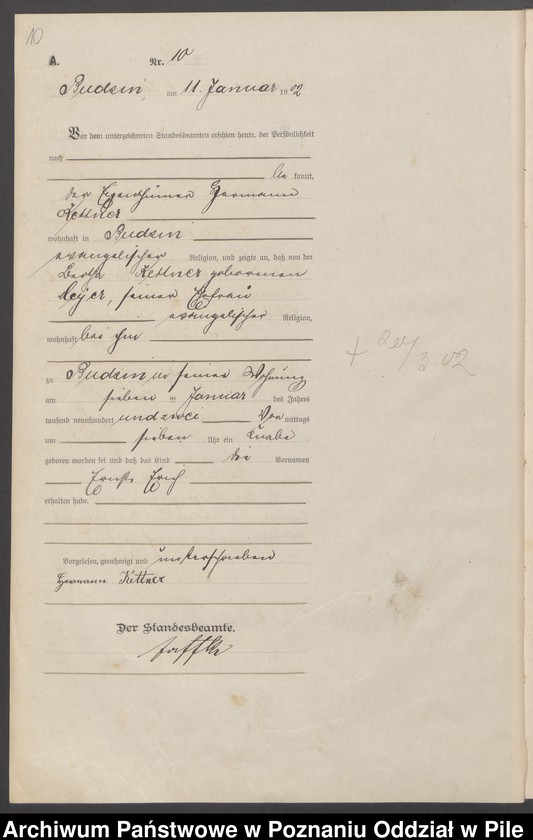 10
A.
Nr. 10
Budsin, am 11. Januar 1902
Vor dem unterzeichneten Standesbeamten erschien heute, der Persönlichkeit
nach
be kannt,
der Eigenthümer Hermann
Kettner
wohnhaft in Budsin
evangelischer Religion, und zeigte an, daß von der
Bertha Kettner geborenen
Meyer, seiner Ehefrau
evangelischer Religion,
wohnhaft bei ihm
zu Budsin in seiner Wohnung
am sieben ten Januar des Jahres
tausend neunhundert und zwei Vor mittags
um sieben Uhr ein Knabe
geboren worden sei und daß das Kind die Vornamen
Ernst Erich
erhalten habe.
Vorgelesen, genehmigt und unterschrieben
Hermann Kettner
Der Standesbeamte.
+ 20/3 02
Archiwum Państwowe w Poznaniu Oddział w Pile